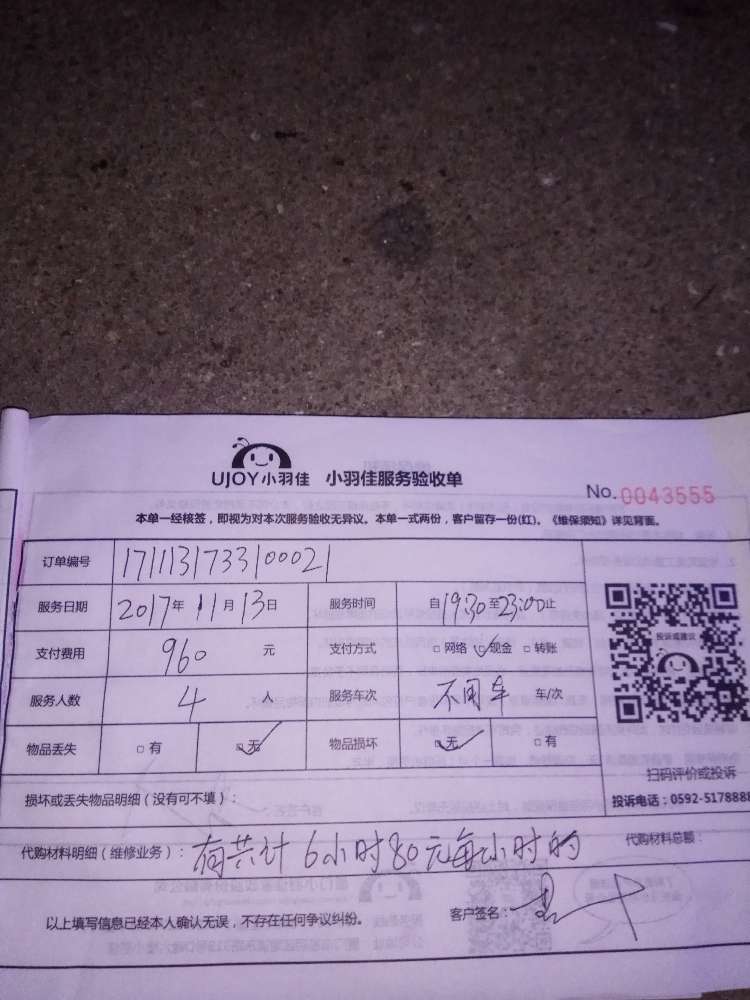 UJOY小羽佳 小羽佳服务验收单
No.0043555
本单一经核签，即视为对本次服务验收无异议。本单一式两份，客户留存一份(红)。《维保须知》详见背面。
订单编号 171113173310002
服务日期 2017年11月13日 服务时间 自19:30至23:00止
支付费用 960元 支付方式 □网络 ☑现金 □转账
投诉或建议
服务人数 4人 服务车次 不用车 车/次
物品丢失 □有 ☑无 物品损坏 ☑无 □有
扫码评价或投诉
损坏或丢失物品明细（没有可不填）：
投诉电话：0592-5178888
代购材料明细（维修业务）：有共计6小时80元每小时的 代购材料总额：
以上填写信息已经本人确认无误，不存在任何争议纠纷。 客户签名：